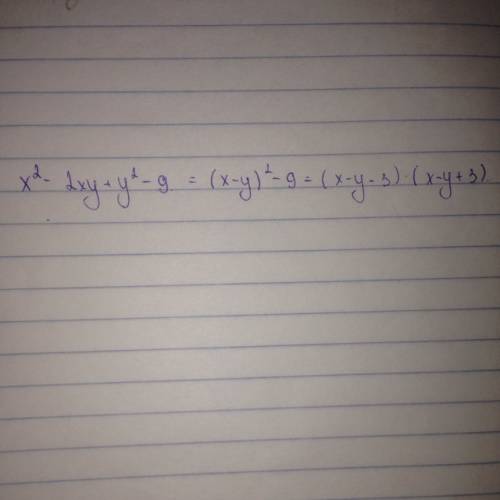 x² - 2xy + y² - 9 = (x-y)² - 9 = (x-y-3) · (x-y+3)